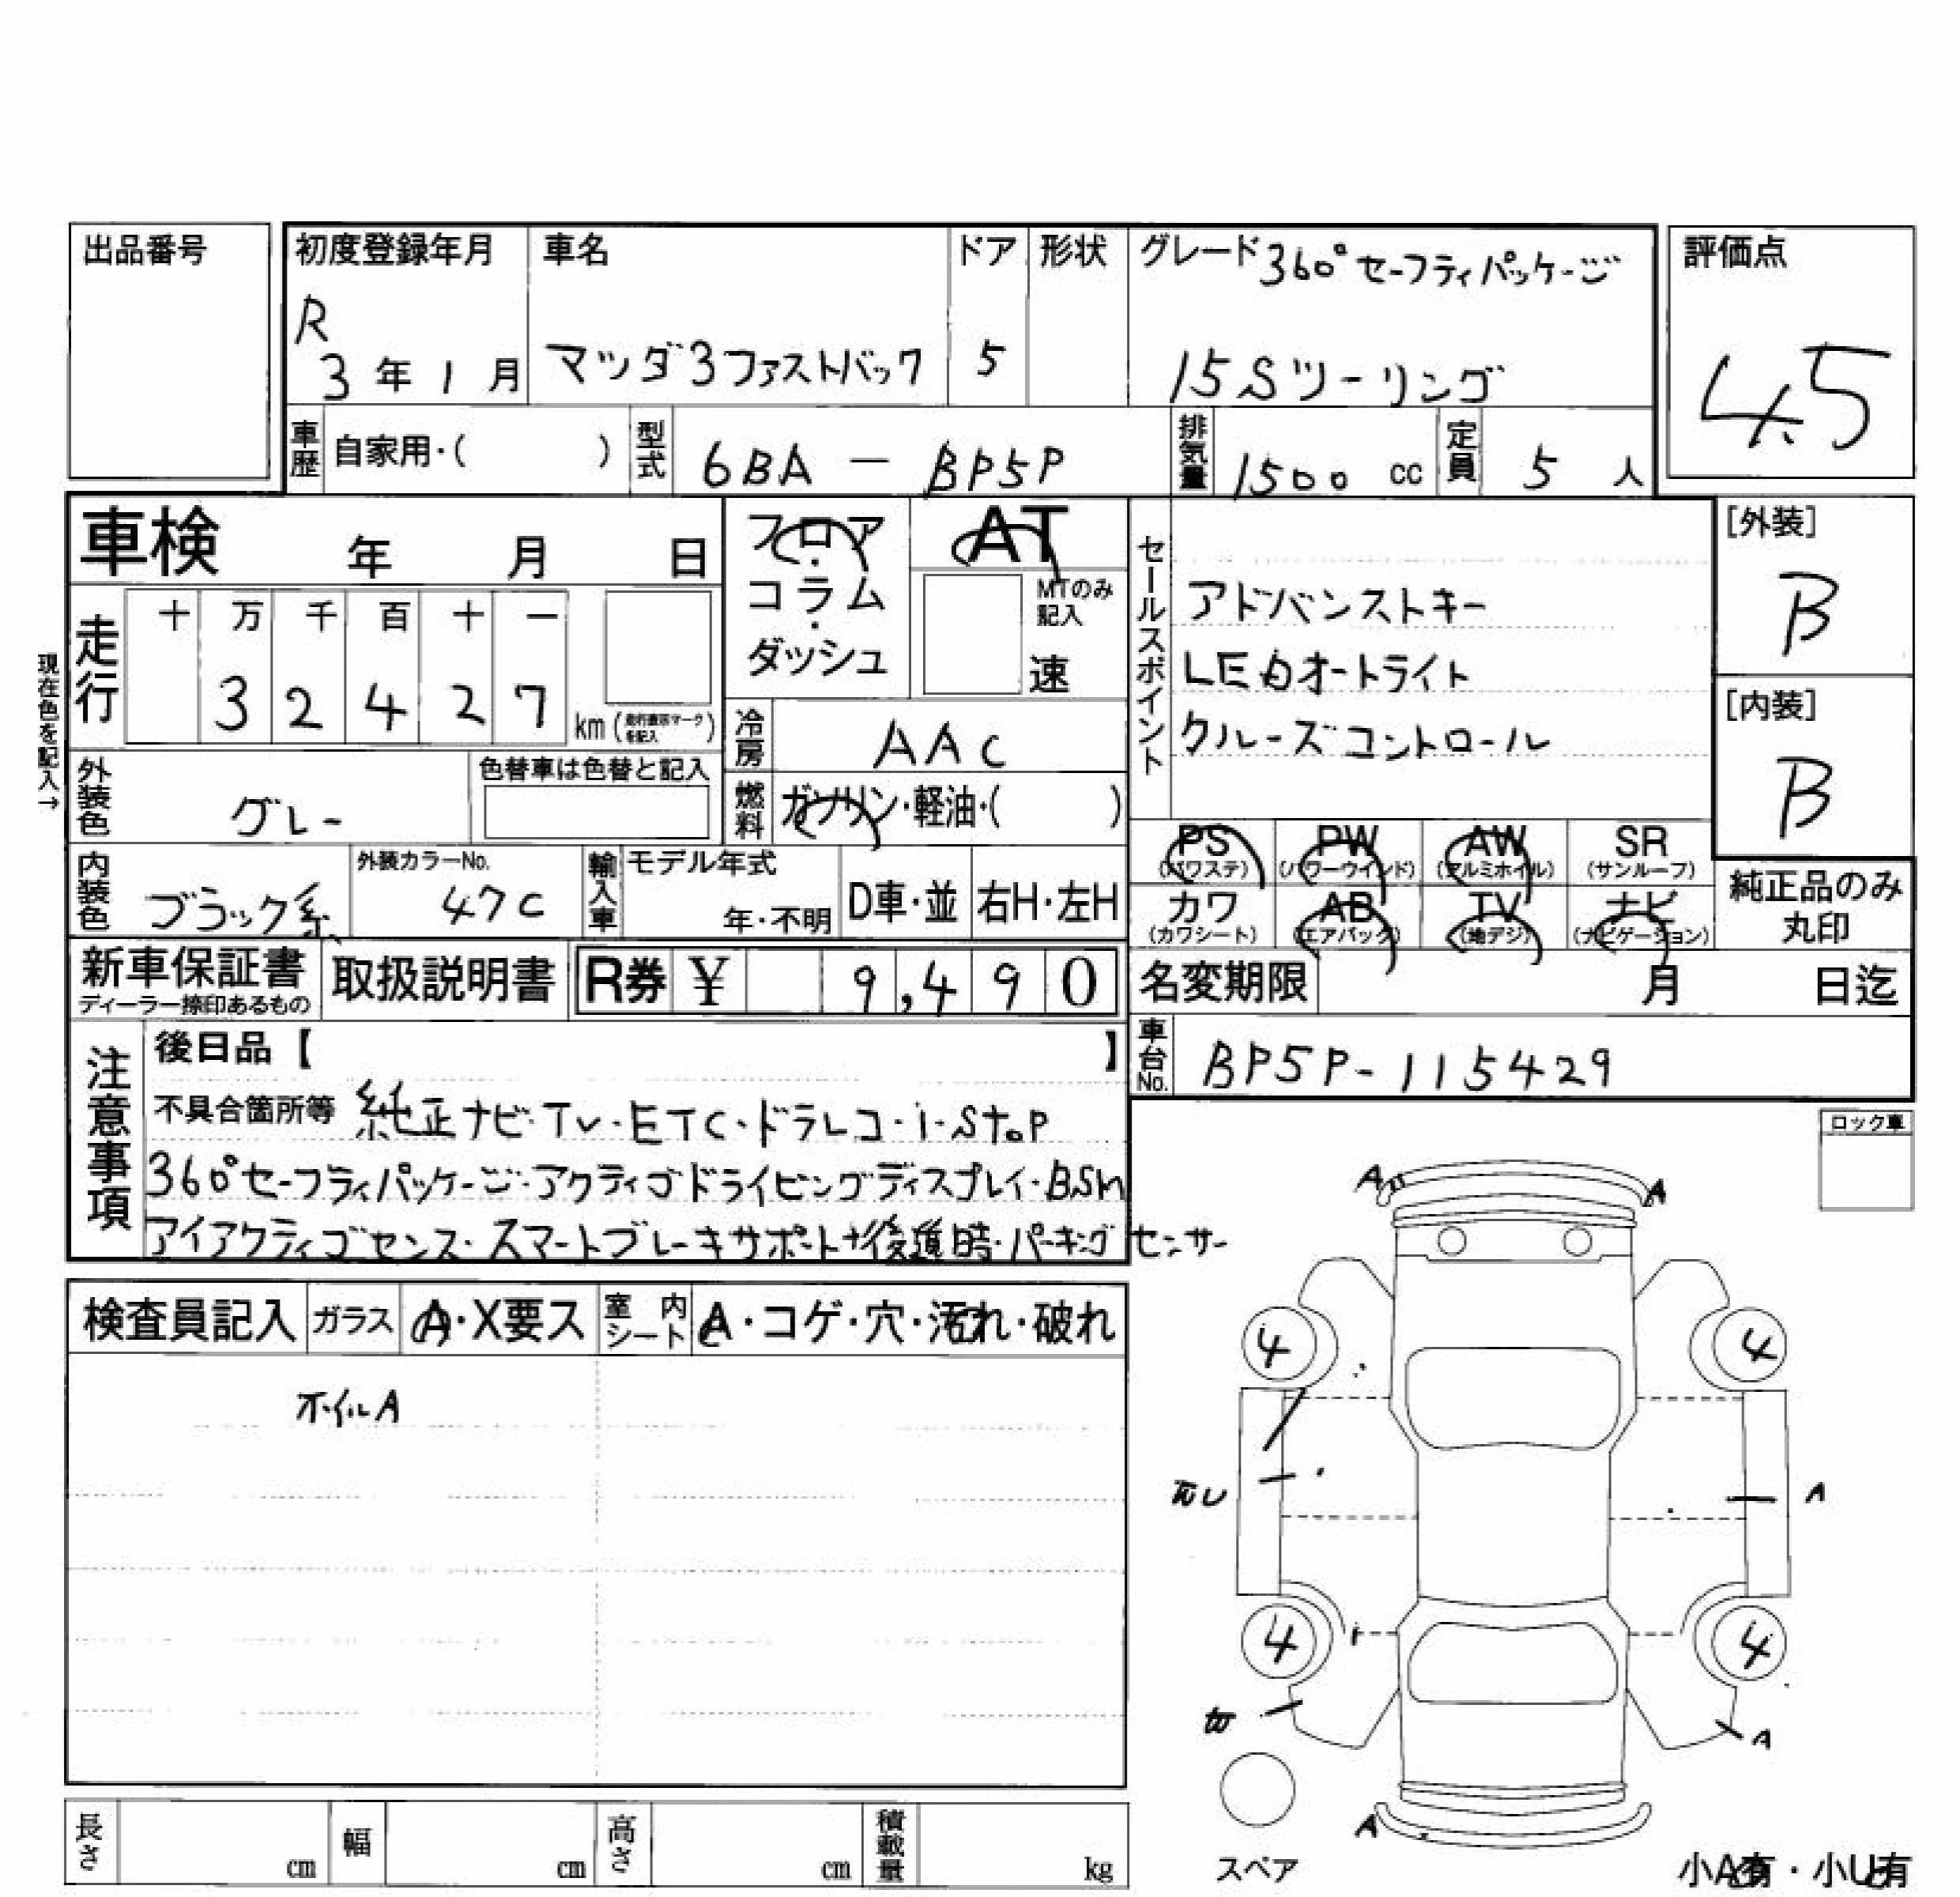 出品番号
初度登録年月 車名 ドア 形状 グレード 360°セーフティパッケージ 評価点
R
3年1月 マツダ3ファストバック 5 15Sツーリング 4.5
車歴 自家用・( ) 型式 6BA - BP5P 排気量 1500 cc 定員 5 人
車検 年 月 日
フロア・コラム・ダッシュ
AT
MTのみ記入
速
セールスポイント
アドバンストキー
LEDオートライト
クルーズコントロール
[外装]
B
[内装]
B
現在色を記入→
走行 十 万 千 百 十 一
3 2 4 2 7 km (走行表示マークを記入)
冷房 AAC
外装色 グレー 色替車は色替と記入
燃料 ガソリン・軽油・( )
PS (パワステ) PW (パワーウインド) AW (アルミホイル) SR (サンルーフ)
カワ (カワシート) AB (エアバッグ) TV (地デジ) ナビ (ナビゲーション)
純正品のみ丸印
内装色 ブラック系 外装カラーNo. 47C 輸入車 モデル年式 年・不明 D車・並 右H・左H
新車保証書 ディーラー捺印あるもの 取扱説明書 R券 ¥ 9,490
名変期限 月 日迄
車台No. BP5P-115429
注意事項
後日品【 】
不具合箇所等 純正ナビ・TV・ETC・ドラレコ・i-Stop
360°セーフティパッケージ・アクティブドライビングディスプレイ・BSM
アイアクティブセンス・スマートブレーキサポート+後退時・パーキングセンサー
ロック車
検査員記入 ガラス A・X要ス 室内シート A・コゲ・穴・汚れ・破れ
ホイルA
A A
4 4
A
4 4
A
A
スペア
小A有・小U有
長さ cm 幅 cm 高さ cm 積載量 kg